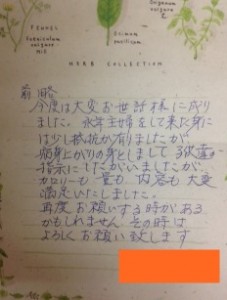 FENNEL
Foeniculum
vulgare
Mill.
Ocimum
basilicum
Origanum
vulgare
L.
HERB COLLECTION
前略
今度は大変お世話様に成り
ました。永年主婦をして来た身に
は少し抵抗が有りましたが
病身上がりの身としまして
指示にしたがいましたが
カロリーも 量も 内容も 大変
満足いたしました。
再度お願いする時がある
かもしれません その時は
よろしくお願い致します